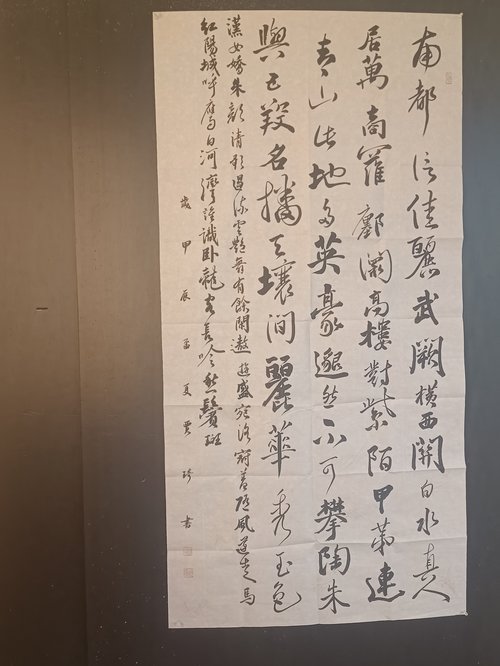 南都信佳麗武闕橫西關白水真人
居萬商羅鄽闤高樓對紫陌甲第連
青山此地多英豪邈然不可攀陶朱
與五羖名播天壤間麗華秀玉色
漢女嬌朱顏清歌遏流雲艷舞有餘閑遨遊盛宛洛冠蓋隨風還走馬
紅陽城呼鷹白河灣誰識臥龍客長吟愁鬢斑
歲甲辰孟夏賈珍書